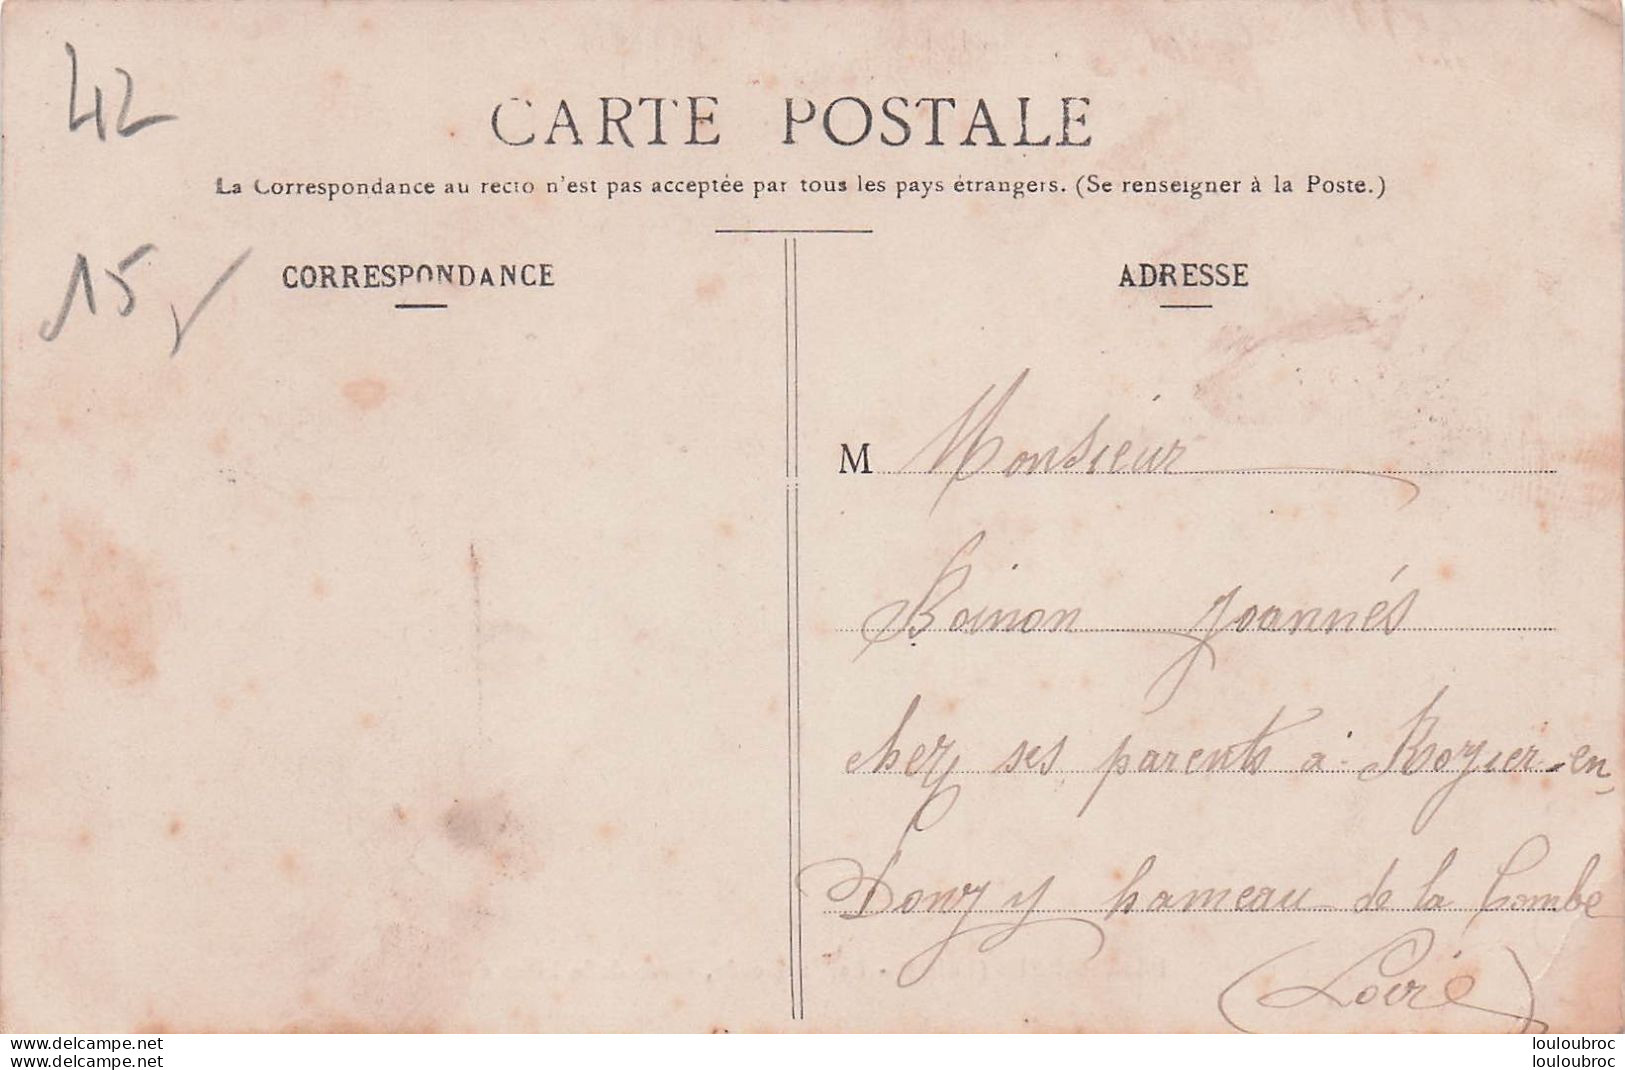 42
CARTE POSTALE
La Correspondance au recto n'est pas acceptée par tous les pays étrangers. (Se renseigner à la Poste.)
15
CORRESPONDANCE
ADRESSE
M Monsieur
Boinon Joannés
chez ses parents à Rozier-en-
Donzy hameau de la Combe
(Loire)
www.delcampe.net
www.delcampe.net
louloubroc
louloubroc